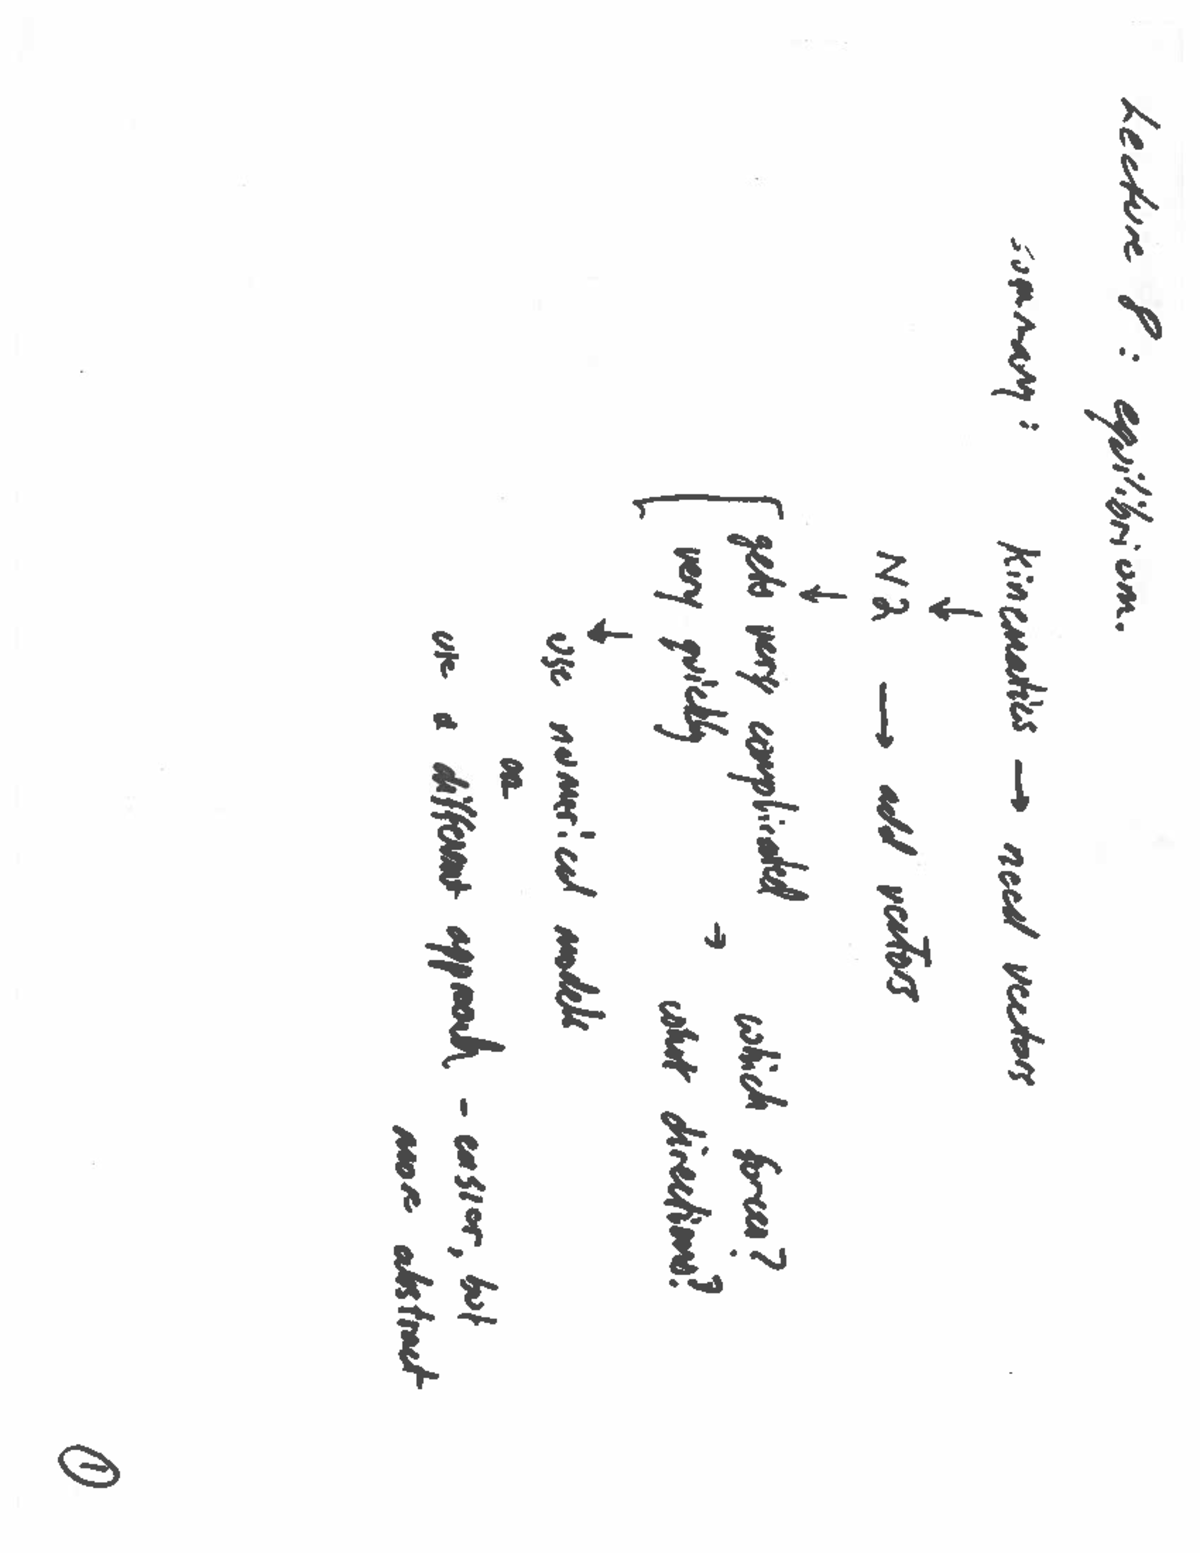 Lecture 8: equilibrium.
summary: Kinematics → need vectors
↓
N2 → add vectors
↓
gets very complicated → which forces?
very quickly what directions?
↓
use numerical models
or
use a different approach - easier, but
more abstract
1